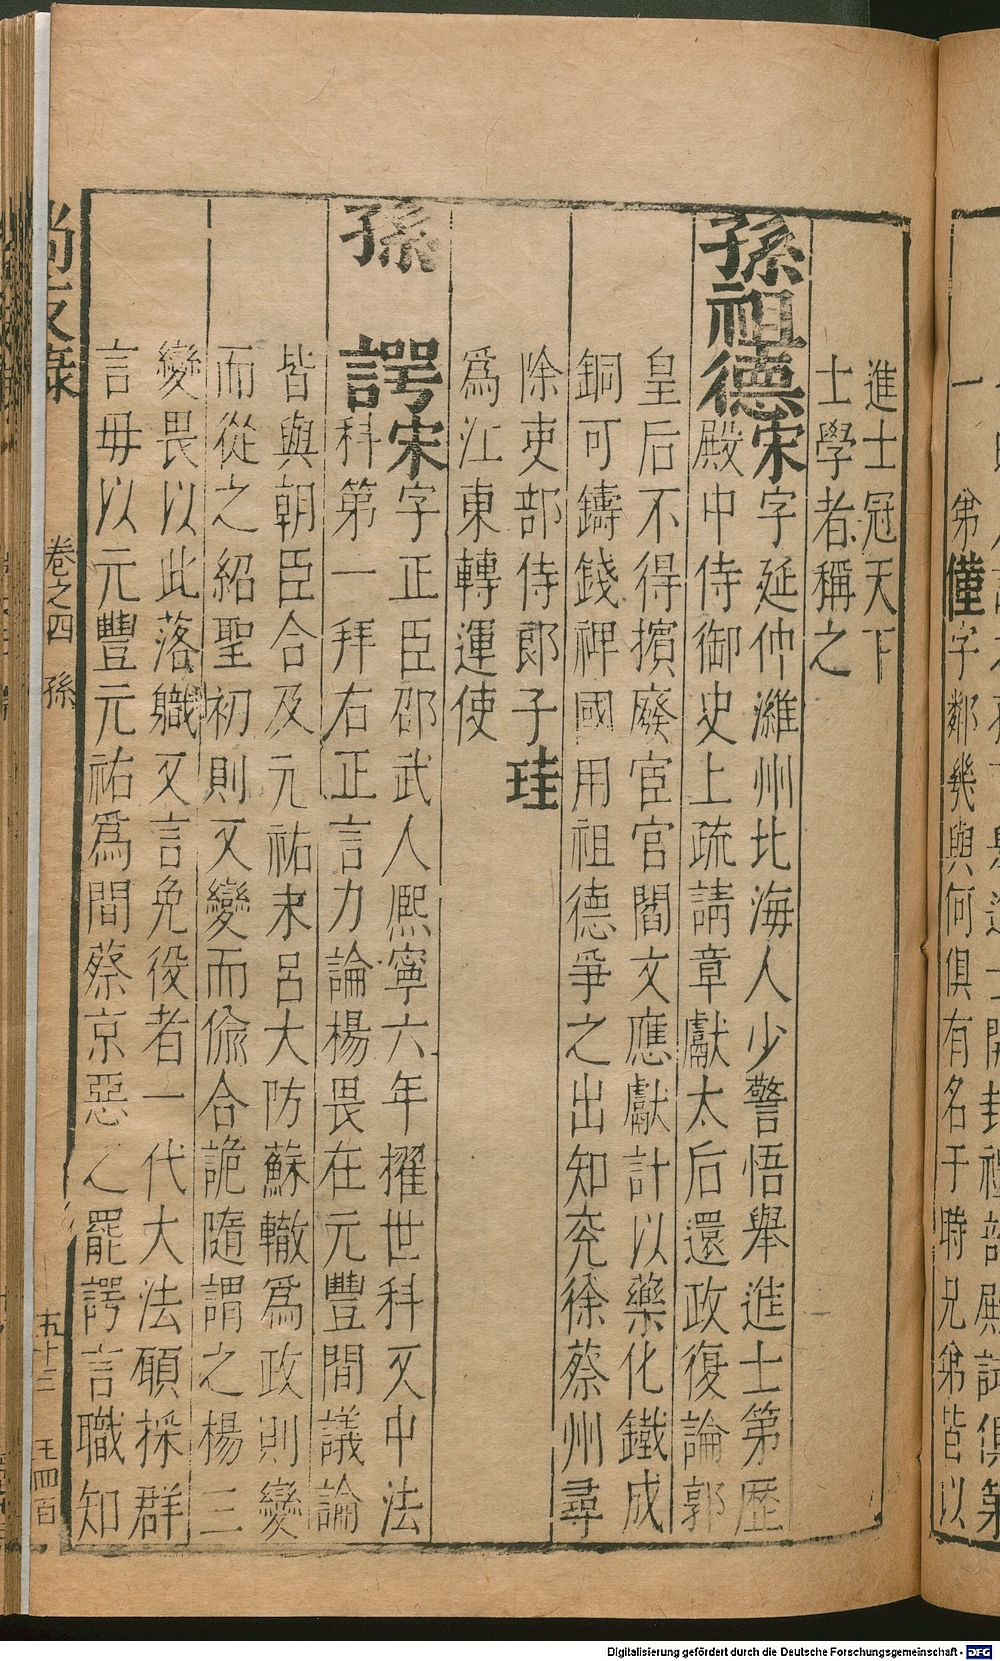 第僅字鄰幾與何俱有名于時兄弟皆以
進士冠天下
士學者稱之
孫祖德宋字延仲濰州北海人少警悟舉進士第歷
殿中侍御史上疏請章獻太后還政復論郭
皇后不得擯廢宦官閻文應獻計以藥化鐵成
銅可鑄錢裨國用祖德爭之出知兖徐蔡州尋
除吏部侍郎子珪
爲江東轉運使
孫諤宋字正臣邵武人熈寧六年擢世科又中法
科第一拜右正言力論楊畏在元豐間議論
皆與朝臣合及元祐末呂大防蘇轍爲政則變
而從之紹聖初則又變而偷合詭隨謂之楊三
變畏以此落職又言免役者一代大法願採群
言毋以元豐元祐爲間蔡京惡之罷諤言職知
尚友錄
卷之四
孫
五十三
王四百
Digitalisierung gefördert durch die Deutsche Forschungsgemeinschaft - DFG